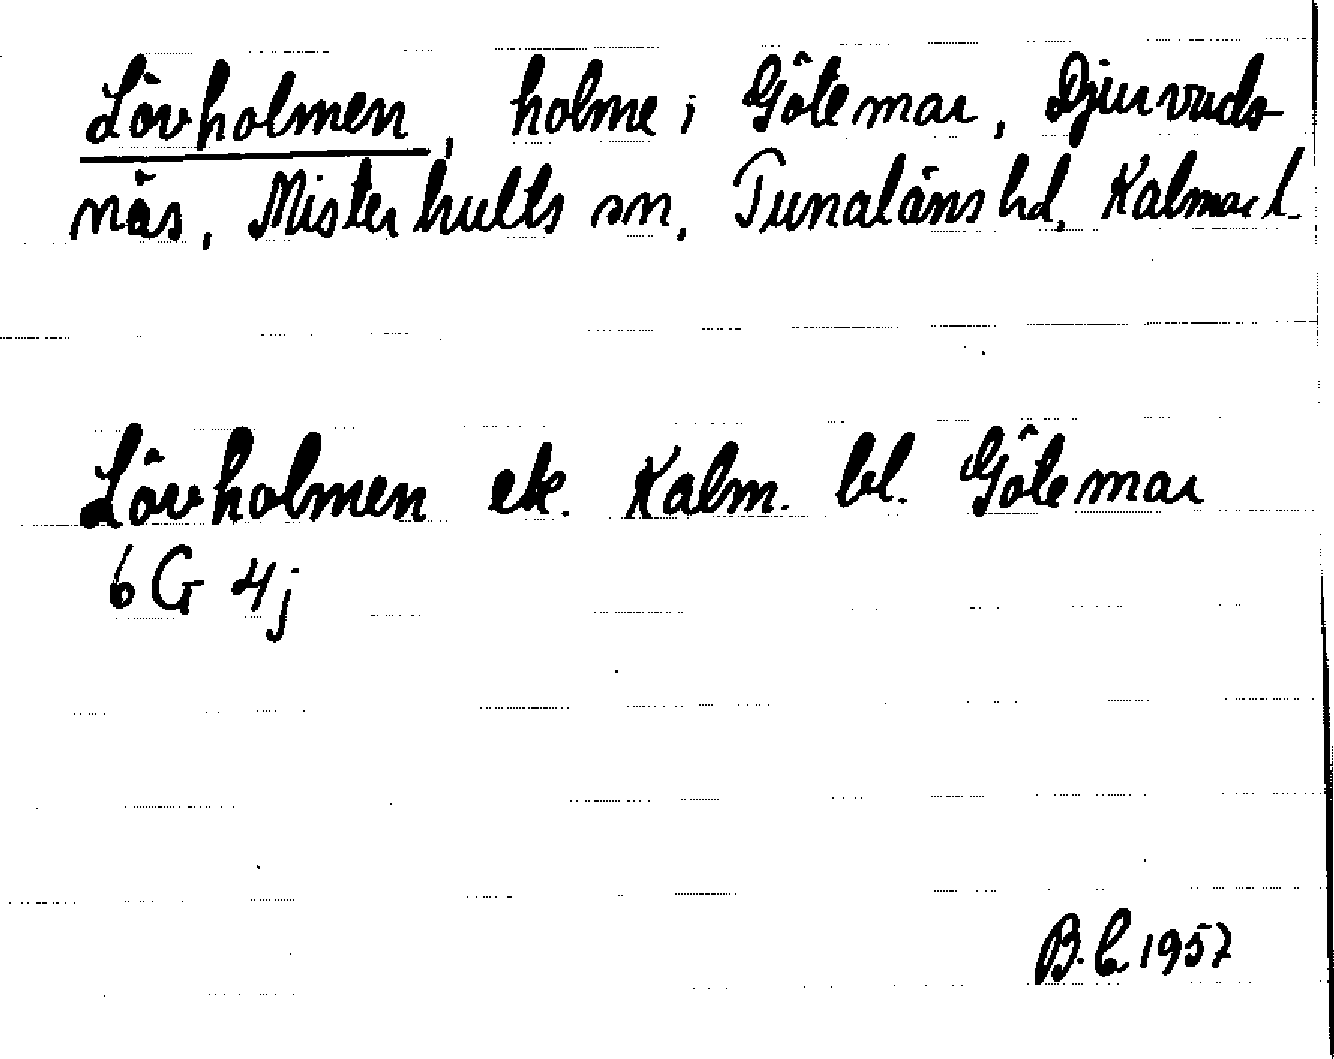 Lövholmen, holme i Götemar, Djurvads
näs, Misterhults sn, Tunaläns hd, Kalmar l.
Lövholmen ek. Kalm. bl. Götemar
6G 4j
B. L 1957